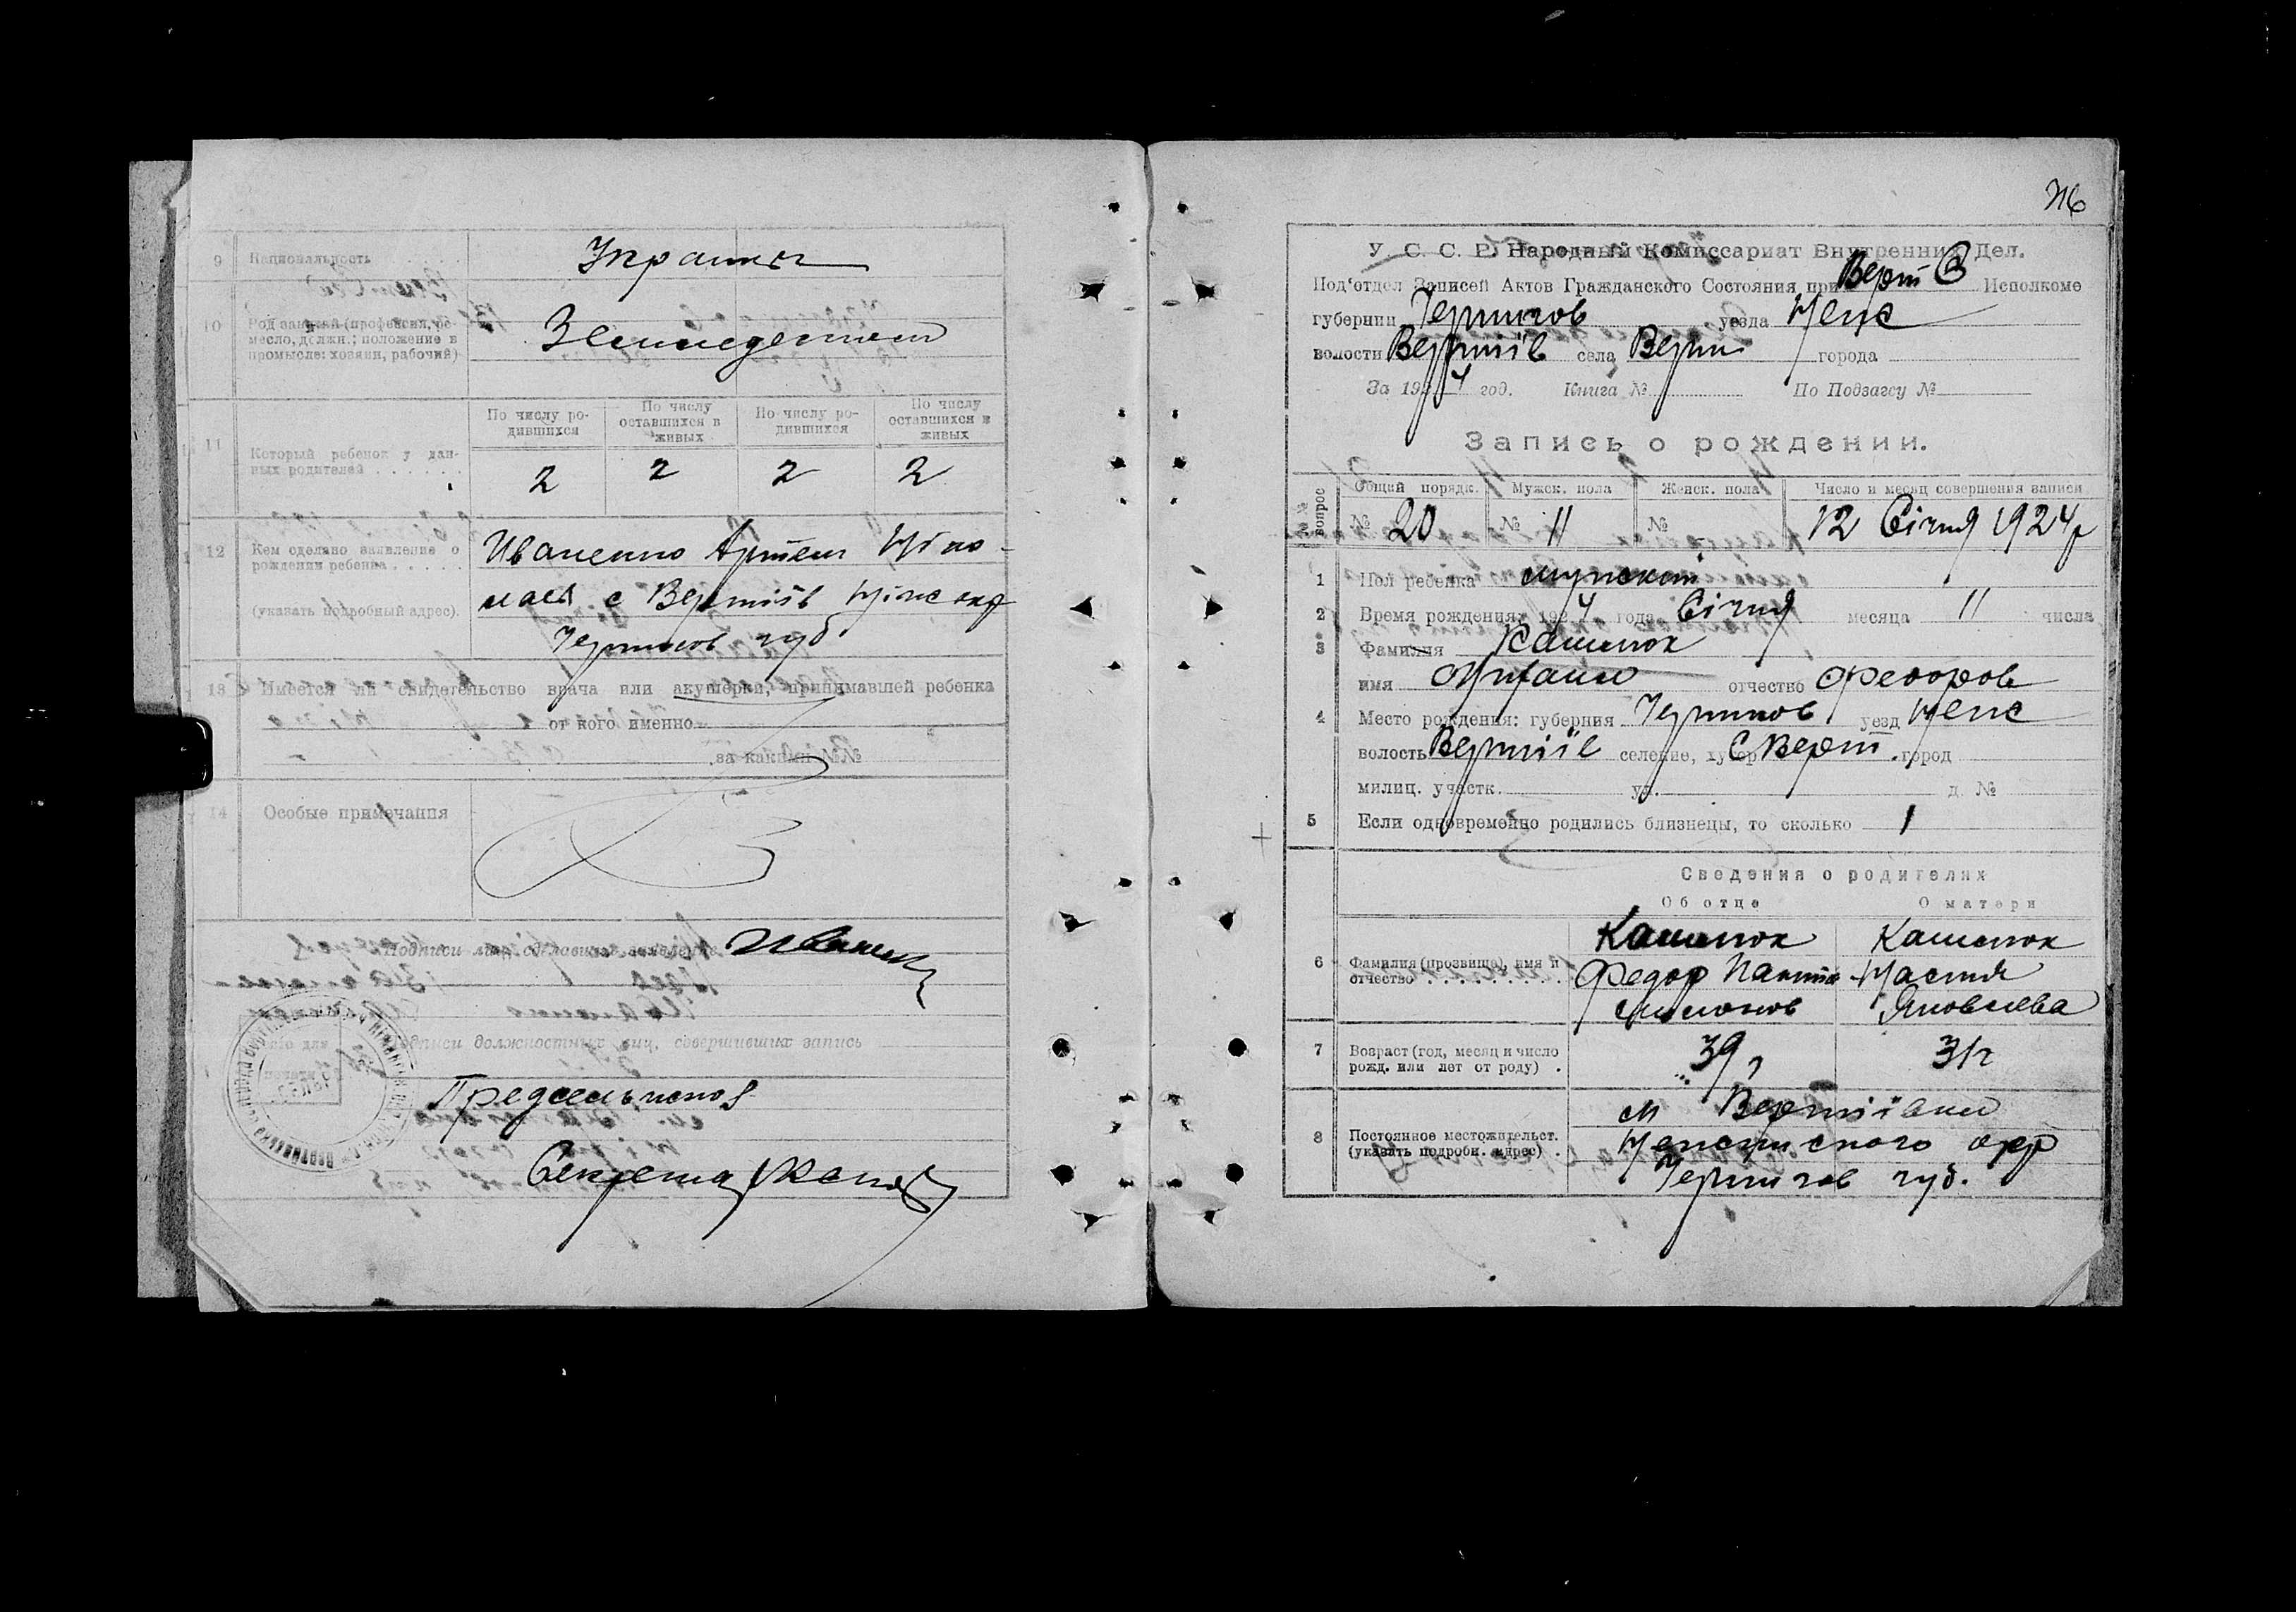 9 Национальность
Украинец
10 Род занятий (профессия, ре-
месло, должн.; положение в
промысле: хозяин, рабочий)
Земледелием
11 Который ребенок у дан-
ных родителей
По числу ро-
дившихся
По числу
оставшихся в
живых
По числу ро-
дившихся
По числу
оставшихся в
живых
2 2 2 2
12 Кем сделано заявление о
рождении ребенка
(указать подробный адрес).
Иваненко Артем Ніко-
лаев с Вертіїв Ніжс окр
Чернигов губ
13 Имеется ли свидетельство врача или акушерки, принимавшей ребенка
от кого именно
за каким №
14 Особые примечания
Подписи лиц, сделавших заявление
Подписи должностных лиц, совершивших запись
Предсельиспол
Секретар
216
У. С. С. Р. Народный Комиссариат Внутренних Дел.
Под'отдел Записей Актов Гражданского Состояния при Верт В Исполкоме
губернии Чернигов уезда Неж
волости Вертіїв села Верт города
За 1924 год. Книга № По Подзагсу №
Запись о рождении.
№№ вопрос
Общий порядк. Мужск. пола Женск. пола Число и месяц совершения записи
№ 20 № 11 № 12 Січня 1924 р
1 Пол ребенка мужской
2 Время рождения: 1924 года Січня месяца 11 числа
3 Фамилия Кашпок
имя Михаил отчество Федоров
4 Место рождения: губерния Чернигов уезд Неж
волость Вертіїв селение, хутор С Верт. город
милиц. участк. ул. д. №
5 Если одновременно родились близнецы, то сколько 1
Сведения о родителях
Об отце О матери
6 Фамилия (прозвище), имя и
отчество
Федор
Настя
Яковлева
7 Возраст (год, месяц и число
рожд. или лет от роду)
39 31
8 Постоянное местожительст.
(указать подробн. адрес)
м Вертіївки
Нежинского окр
Чернигов губ.